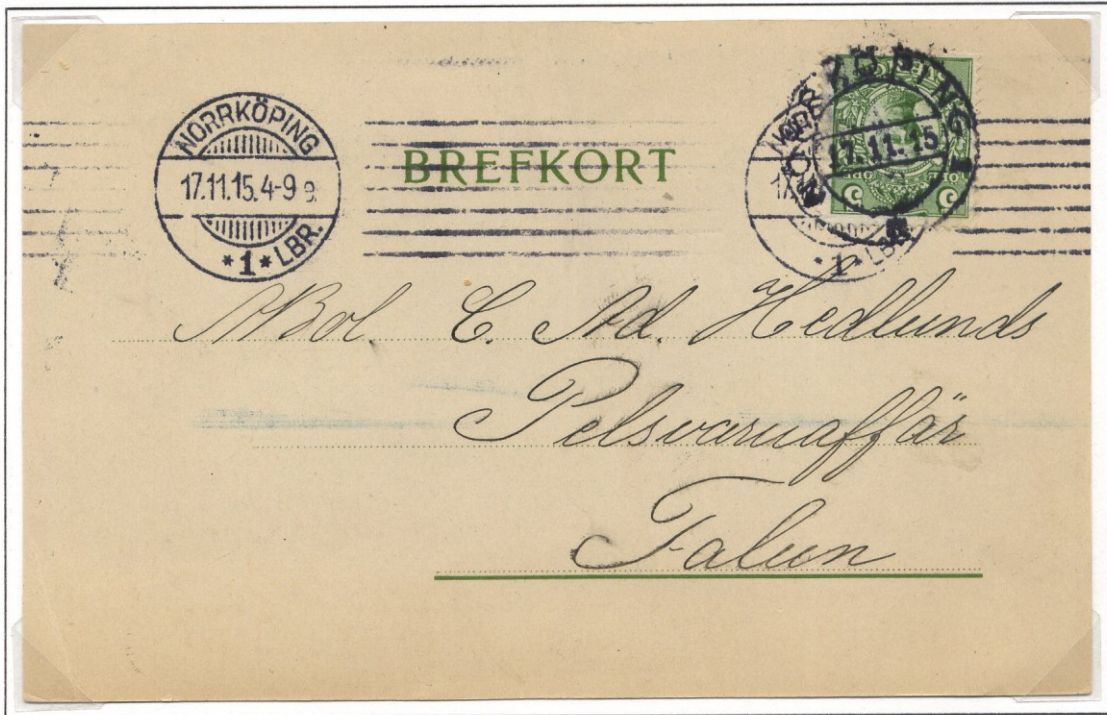 NORRKÖPING
17.11.15.4-9
*1* LBR.
BREFKORT
NORRKÖPING 1
17.11.15
5 5
C. Ad. Hedlunds
Pelsvaruaffär
Falun